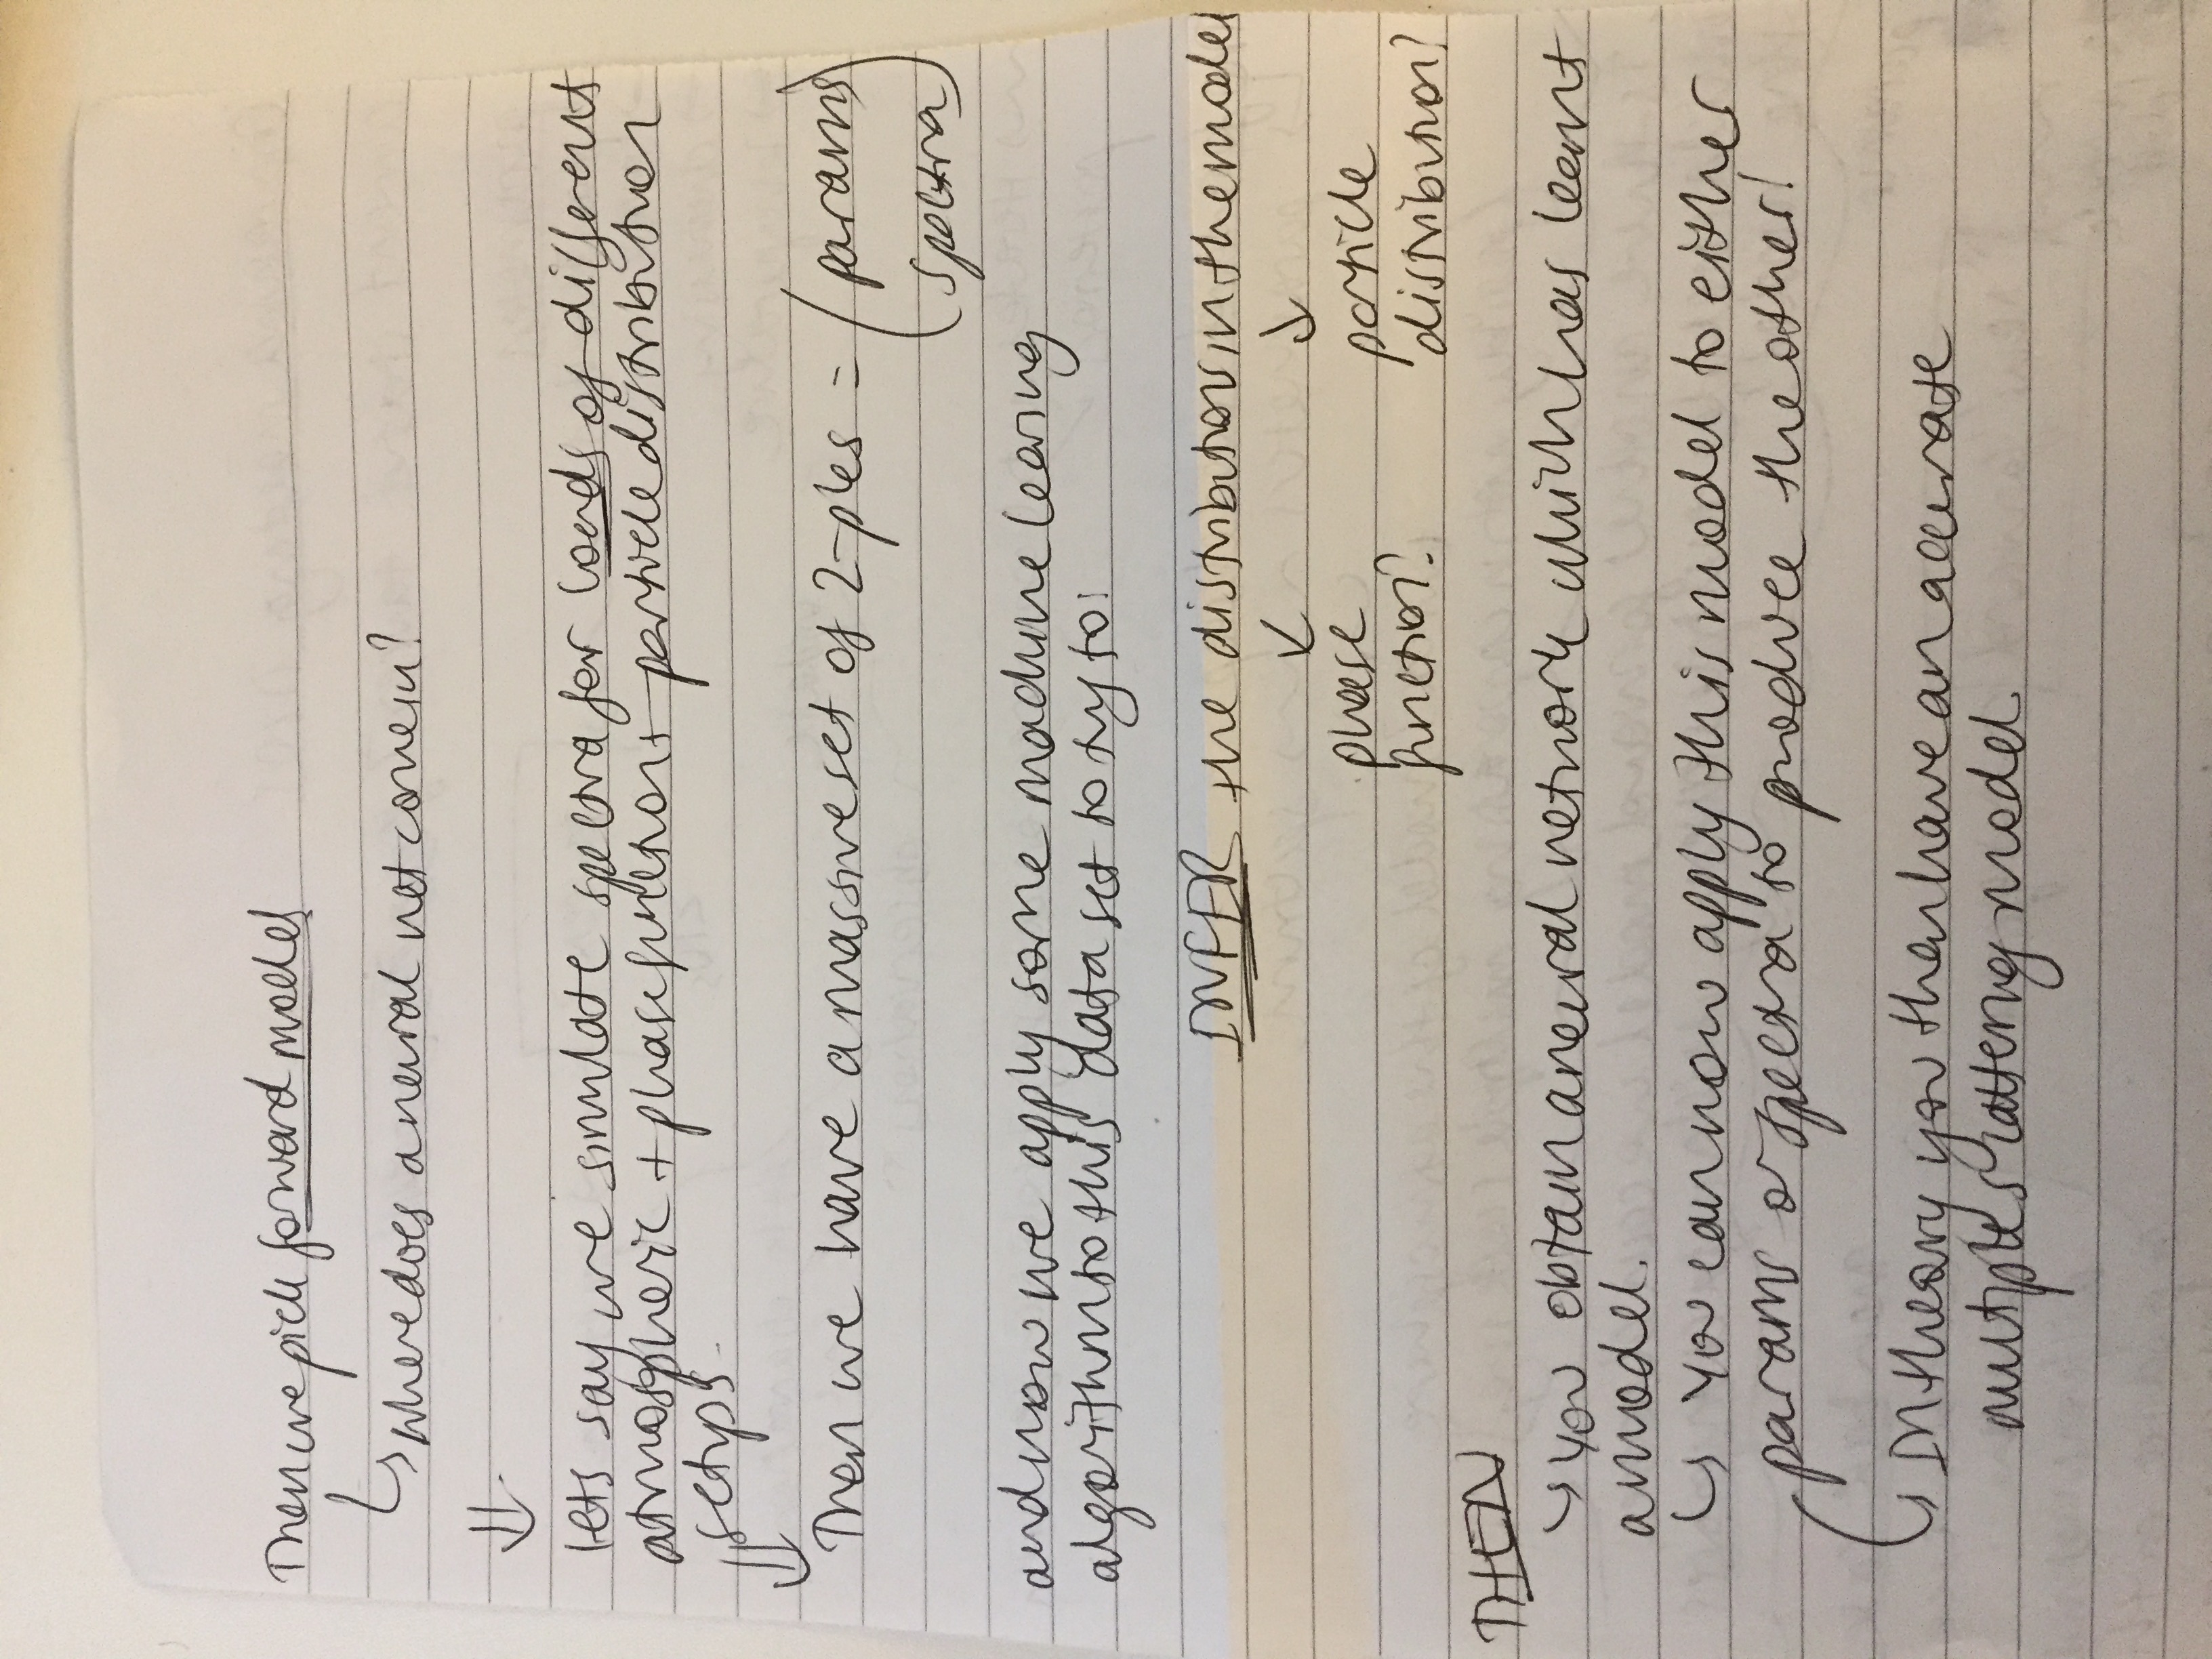 Then we pick forward model
↳ where does a neural net come in?
⇓
lets say we simulate spectra for loads of different
atmospheric + phase function + particle distribution
setups.
⇓
Then we have a massive set of 2-ples = (params)
(spectra)
and now we apply some machine learing
algorithm to this data set to try to:
INFER the distributions in the model
↓ ↓
phase particle
function? distribution?
THEN
↳ you obtain a neural network which has learnt
a model.
↳ you can now apply this model to either
params or spectra to produce the other!
↳ In theory you then have an accurate
multiple scattering model.